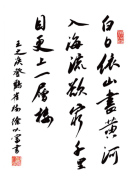 白日依山盡黃河
入海流欲窮千里
目更上一層樓
王之渙登鸛雀樓 書